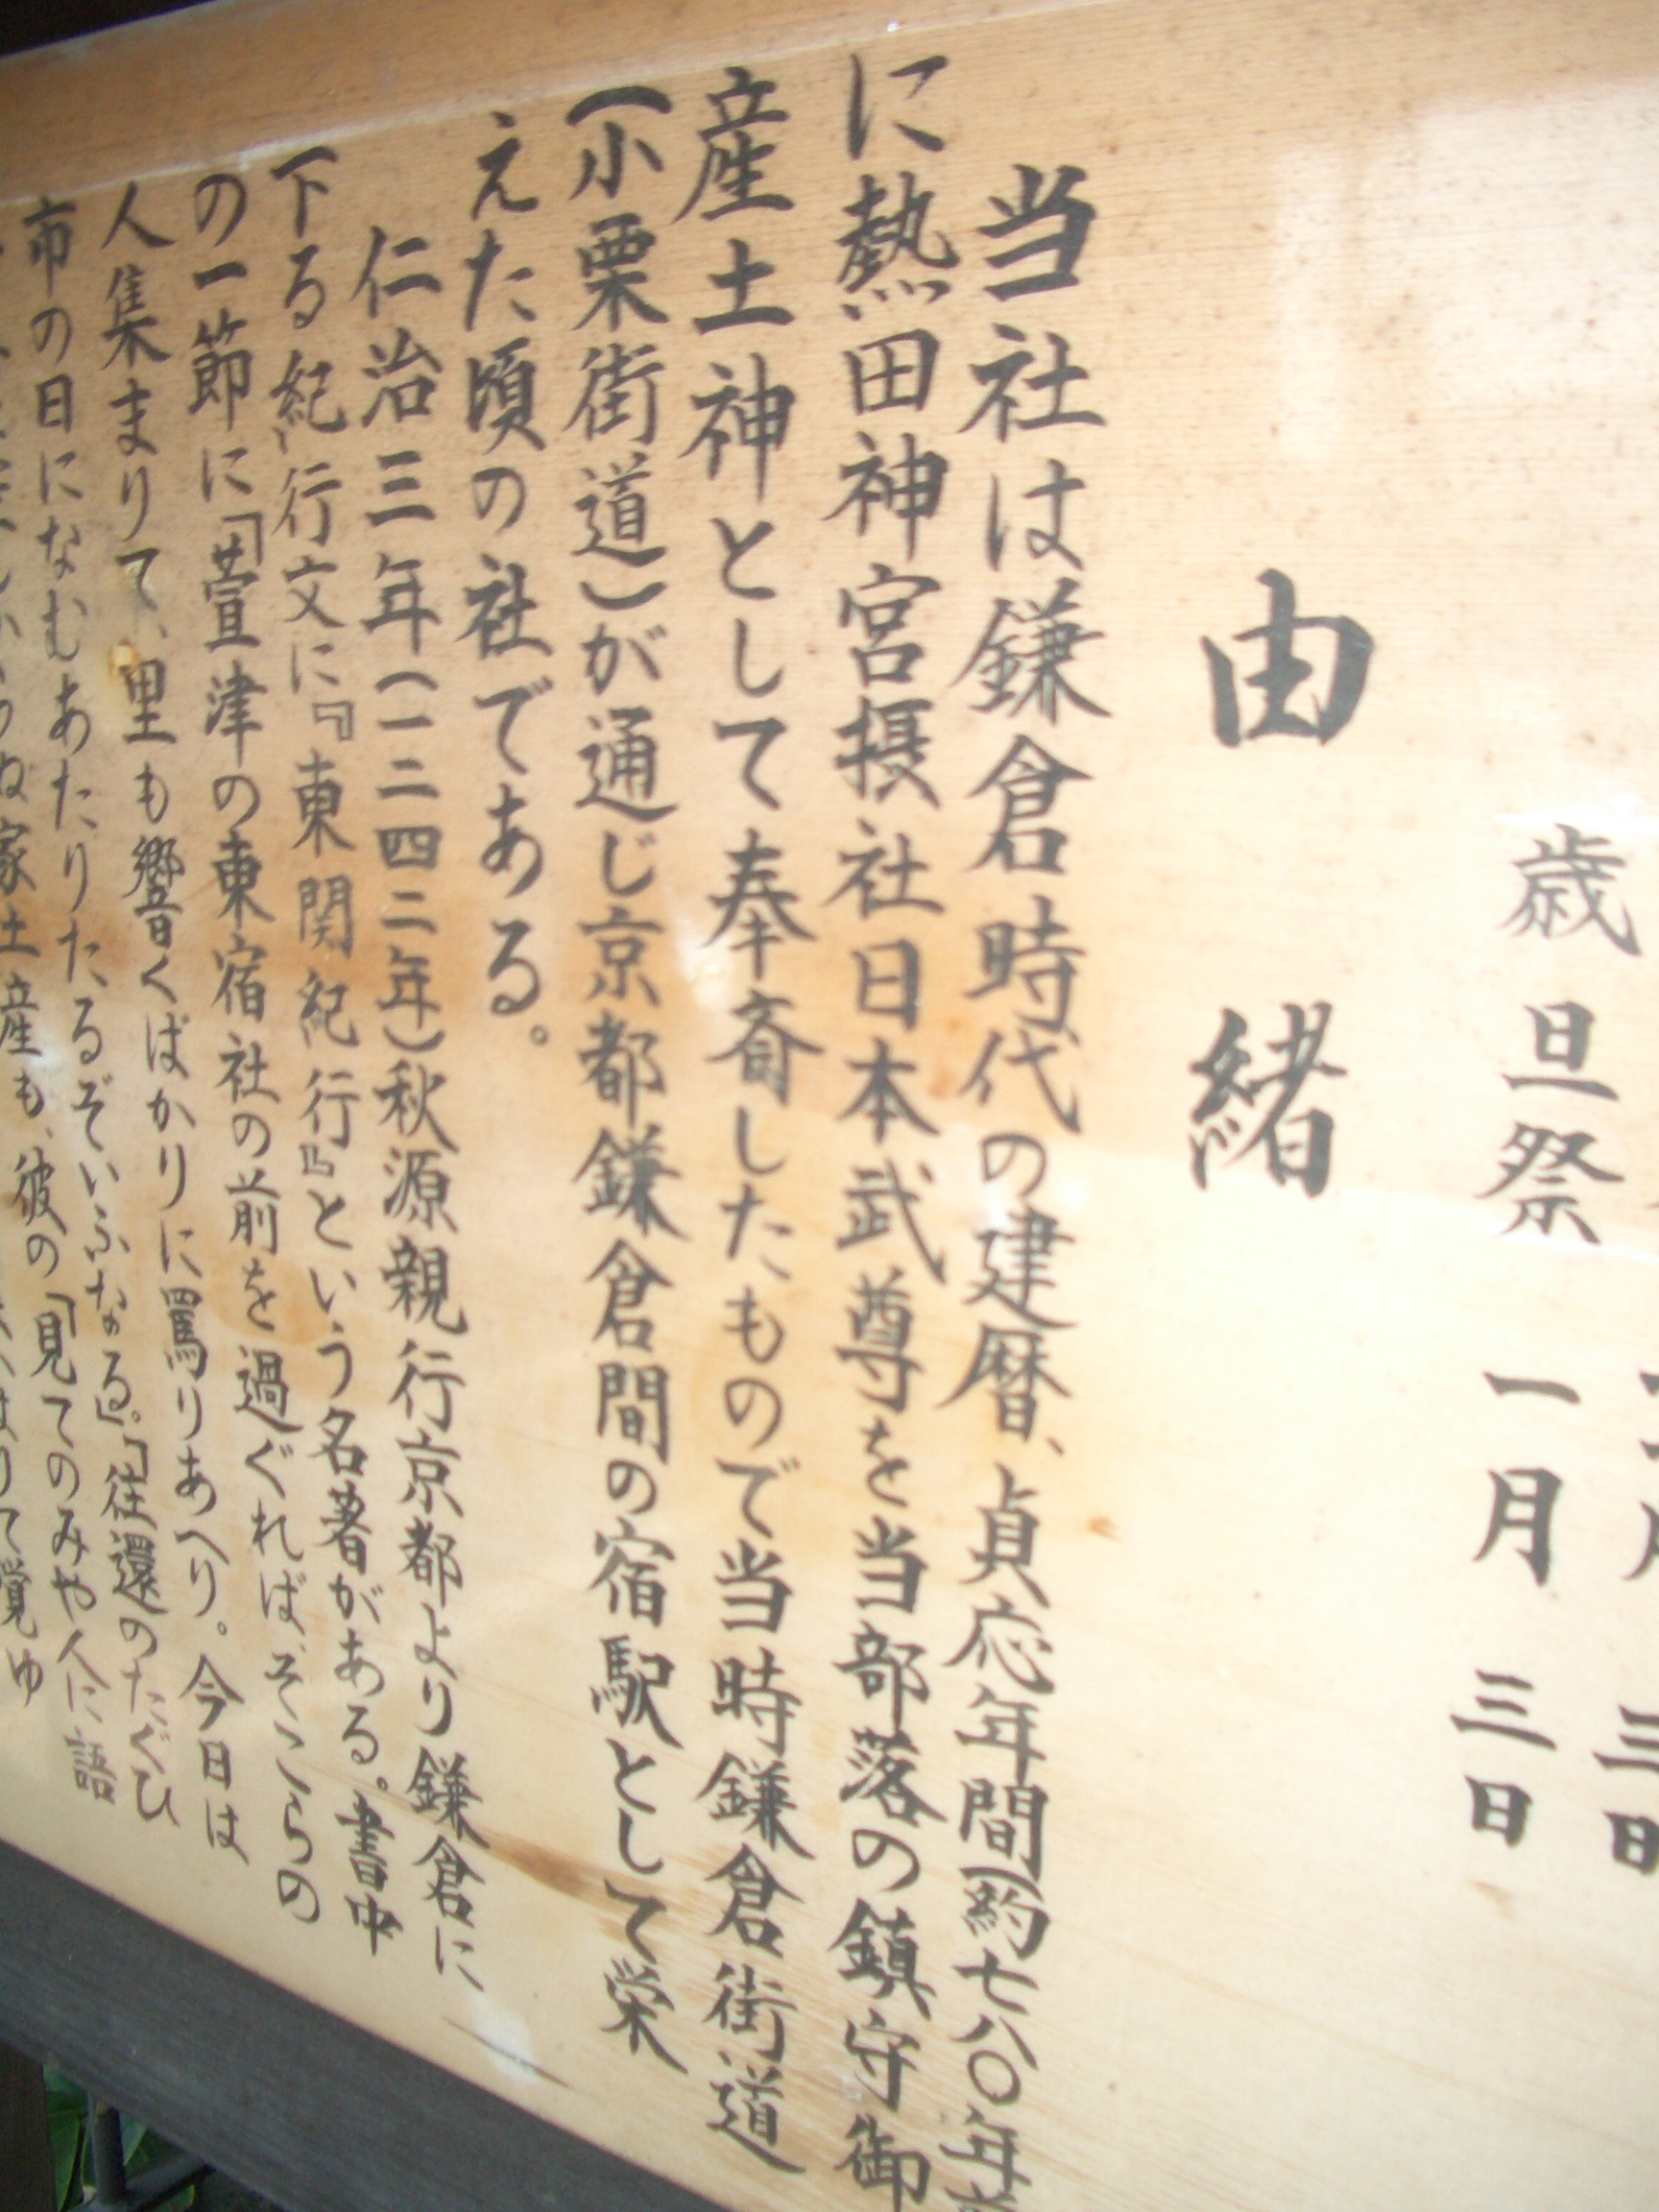 三日
歳旦祭 一月三日
由緒
当社は鎌倉時代の建暦、貞応年間(約七八〇年
に熱田神宮摂社日本武尊を当部落の鎮守御
産土神として奉斎したもので当時鎌倉街道
(小栗街道)が通じ京都鎌倉間の宿駅として栄
えた頃の社である。
仁治三年(一二四二年)秋源親行京都より鎌倉に
下る紀行文に『東関紀行』という名著がある。書中
の一節に「萱津の東宿社の前を過ぐれば、そこらの
人集まりて、里も響くばかりに罵りあへり。今日は
市の日になむあたりたるぞいふなる」。「往還のたぐひ
家土産も、彼の「見てのみや人に語
覚ゆ